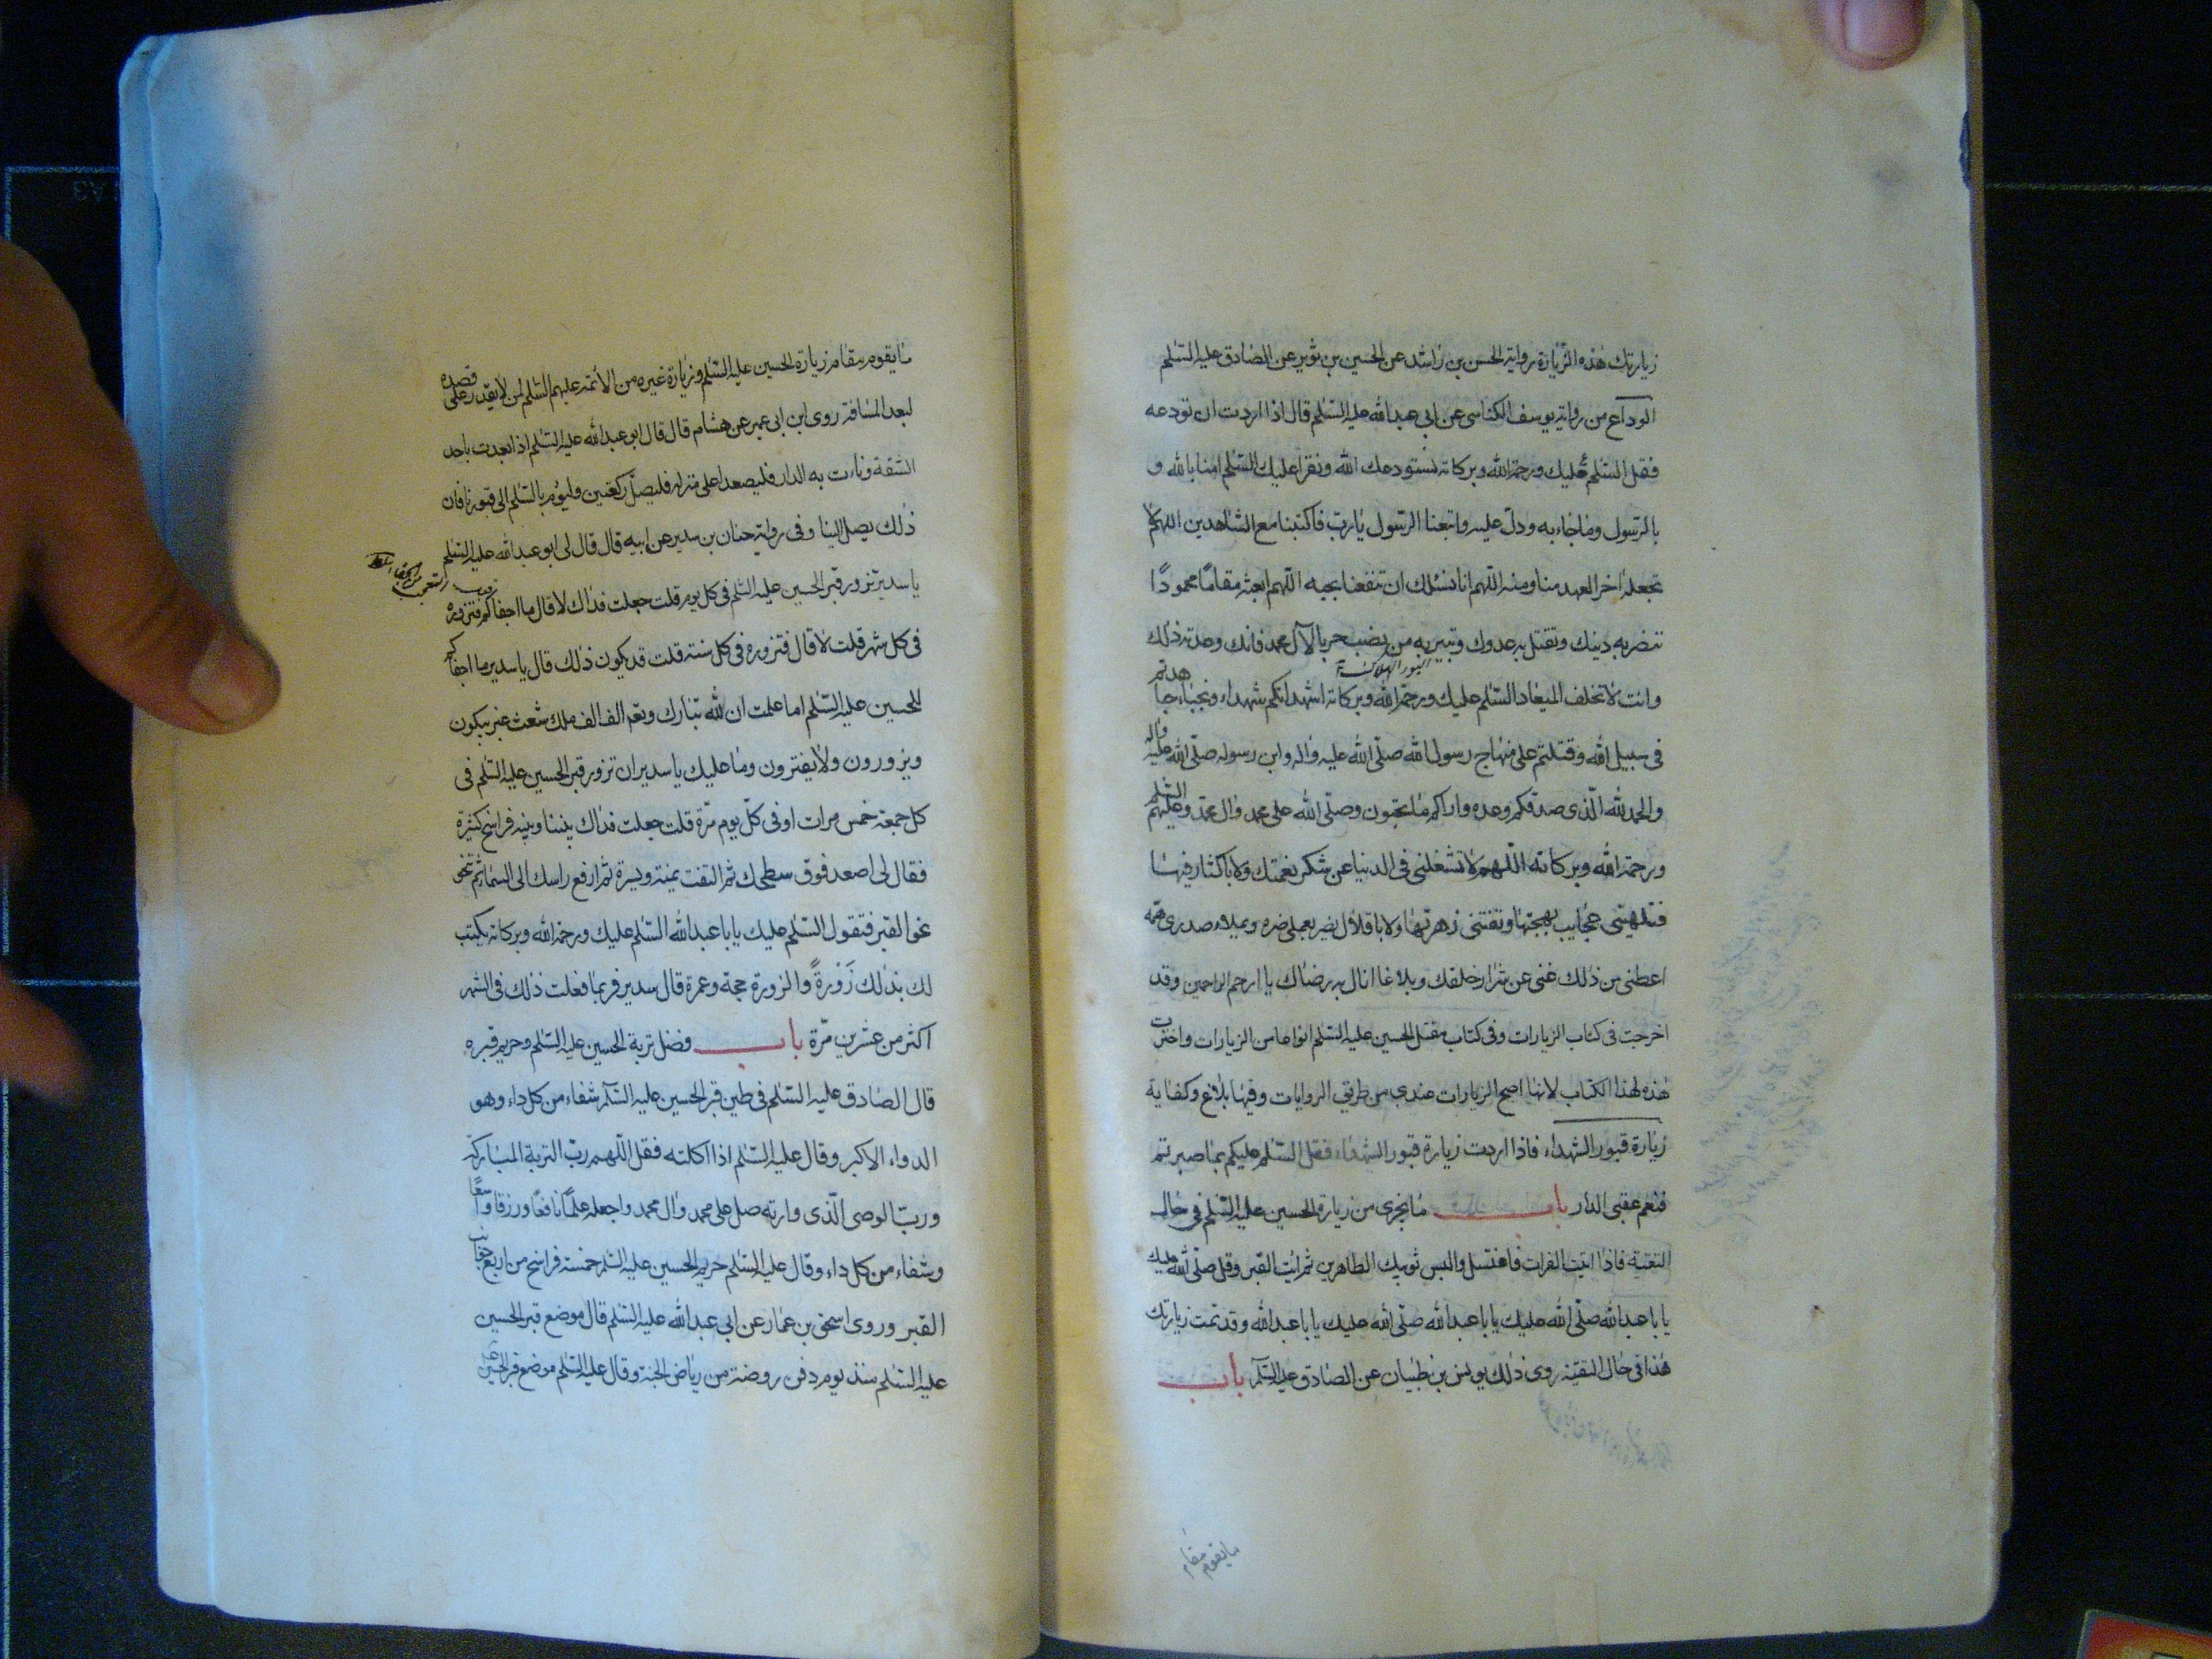 زيارتك هذه الزيارة رواية الحسن بن راشد عن الحسين بن ثوير عن الصادق عليه السلم
الوداع من رواية يوسف الكناسى عن ابى عبدالله عليه السلم قال اذا اردت ان تودعه
فقل السلم عليك ورحمة الله وبركاته نستودعك الله ونقرا عليك السلم امنا بالله و
بالرسول وما جاء به ودل عليه واتبعنا الرسول يا رب فاكتبنا مع الشاهدين اللهم لا
تجعله اخر العهد منا ومنه اللهم انا نسئلك ان تنفعنا بحبه اللهم ابعثه مقاما محمودا
تنصر به دينك وتقتل به عدوك وتبير به من نصب حربا لآل محمد فانك وعدته ذلك
البور الهلاك
وانت لا تخلف الميعاد السلم عليك ورحمة الله وبركاته اشهد انكم شهداء ونجباء جاهدتم
فى سبيل الله وقتلتم على منهاج رسول الله صلى الله عليه واله وابن رسوله صلى الله عليه واله
والحمد لله الذى صدقكم وعده واراكم ما تحبون وصلى الله على محمد وال محمد وعليهم السلم
ورحمة الله وبركاته اللهم لا تشغلنى فى الدنيا عن شكر نعمتك ولا باكثار فيها
فتلهينى عجايب بهجتها وتفتننى زهرتها ولا باقلال يضر بعملى ضره ويملاء صدرى همه
اعطنى من ذلك غنى عن شرار خلقك وبلاغا انال به رضاك يا ارحم الراحمين وقد
اخرجت فى كتاب الزيارات وفى كتاب مقتل الحسين عليه السلم انواعا من الزيارات واخترت
هذه لهذا الكتاب لانها اصح الزيارات عندى من طريق الروايات وفيها بلاغ وكفاية
زيارة قبور الشهداء فاذا اردت زيارة قبور الشهداء فقل السلم عليكم بما صبرتم
فنعم عقبى الدار باب ما يجزى من زيارة الحسين عليه السلم فى حال
التقية فاذا اتيت الفرات فاغتسل والبس ثوبيك الطاهرين ثم ائت القبر وقل صلى الله عليك
يا با عبدالله صلى الله عليك يا با عبدالله صلى الله عليك يا با عبدالله وقد تمت زيارتك
هذا فى حال التقية روى ذلك يونس بن ظبيان عن الصادق عليه السلم باب
ما يقوم مقام
ما يقوم مقام زيارة الحسين عليه السلم وزيارة غيره من الائمة عليهم السلم لمن لا يقدر على قصده
لبعد المسافة روى ابن ابى عمير عن هشام قال قال ابو عبدالله عليه السلم اذا بعدت باحد
الشقة وناءت به الدار فليصعد اعلى منزله فليصل ركعتين وليؤم بالسلم الى قبورنا فان
ذلك يصل الينا وفى رواية حنان بن سدير عن ابيه قال قال لى ابو عبدالله عليه السلم
يا سدير تزور قبر الحسين عليه السلم فى كل يوم قلت جعلت فداك لا قال ما اجفاكم فتزوره
فى كل شهر قلت لا قال فتزوره فى كل سنة قلت قد يكون ذلك قال يا سدير ما اجفاكم
للحسين عليه السلم اما علمت ان لله تبارك وتعالى الف الف ملك شعث غبر يبكون
ويزورون ولا يفترون وما عليك يا سدير ان تزور قبر الحسين عليه السلم فى
كل جمعة خمس مرات او فى كل يوم مرة قلت جعلت فداك بيننا وبينه فراسخ كثيرة
فقال لى اصعد فوق سطحك ثم التفت يمنة ويسرة ثم ارفع راسك الى السماء ثم تنحى
نحو القبر فتقول السلم عليك يا با عبدالله السلم عليك ورحمة الله وبركاته يكتب
لك بذلك زَوْرةً والزورة حجة وعمرة قال سدير فربما فعلت ذلك فى الشهر
اكثر من عشرين مرة باب فضل تربة الحسين عليه السلم وحريم قبره
قال الصادق عليه السلم فى طين قبر الحسين عليه السلم شفاء من كل داء وهو
الدواء الاكبر وقال عليه السلم اذا اكلته فقل اللهم رب التربة المباركة
ورب الوصى الذى وارته صل على محمد وال محمد واجعله علما نافعا ورزقا واسعا
وشفاء من كل داء وقال عليه السلم حريم الحسين عليه السلم خمسة فراسخ من اربع جوانب
القبر وروى اسحق بن عمار عن ابى عبدالله عليه السلم قال موضع قبر الحسين
عليه السلم منذ يوم دفن روضة من رياض الجنة وقال عليه السلم موضع قبر الحسين